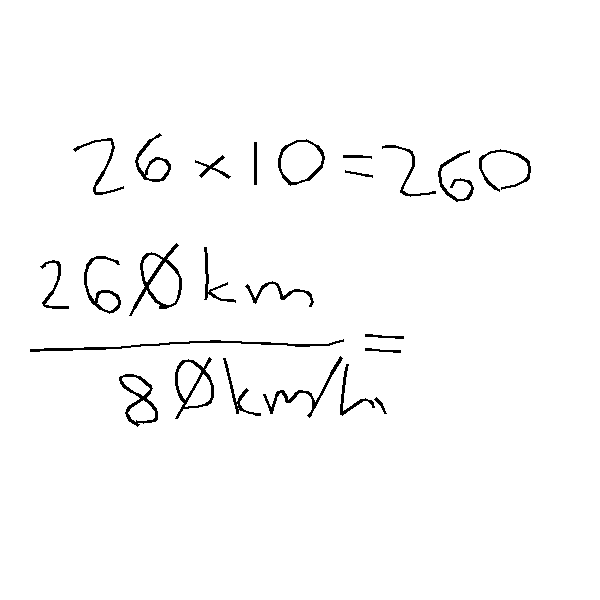 26 × 10 = 260
260 km
80 km/h =